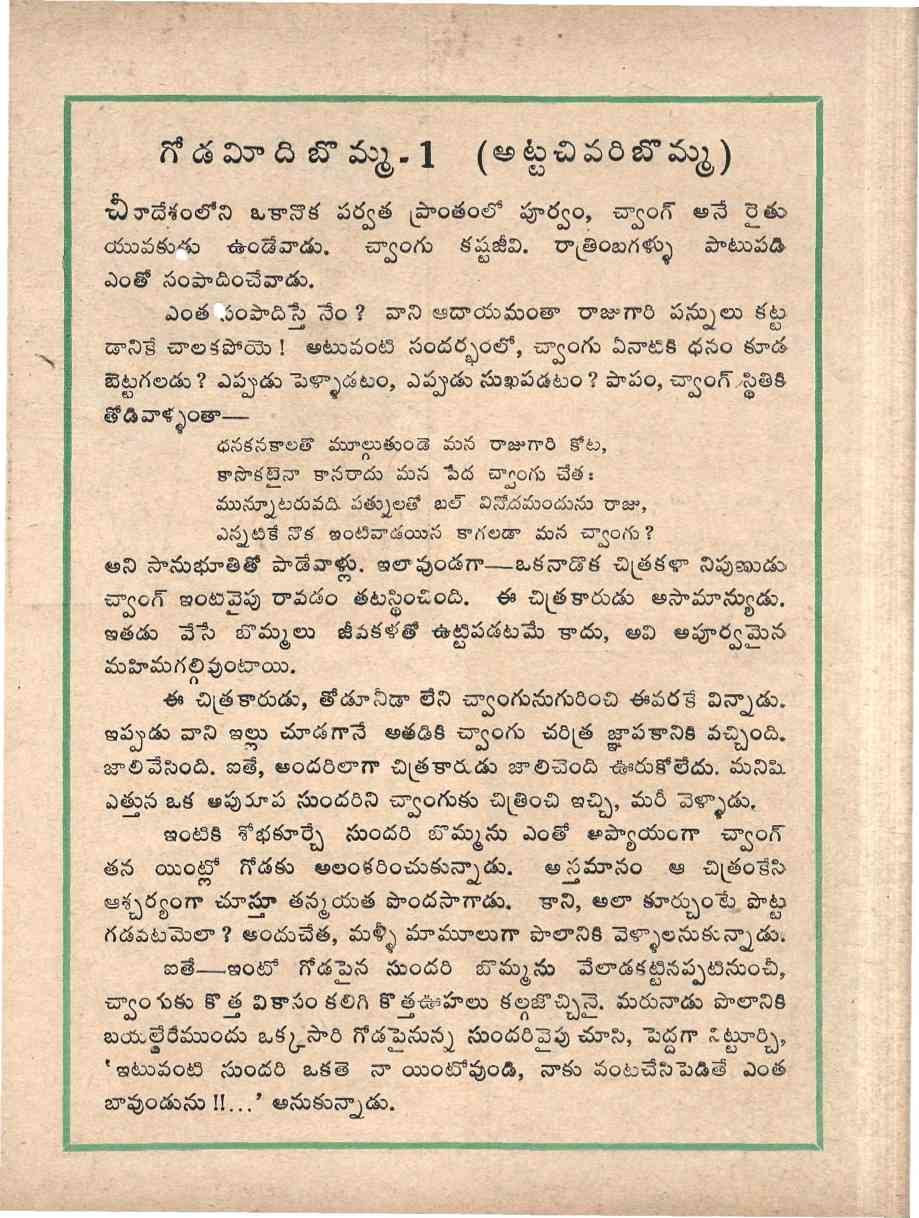 గోడమీది బొమ్మ - 1 (అట్టచివరి బొమ్మ)
చీనాదేశంలోని ఒకానొక పర్వత ప్రాంతంలో పూర్వం, చ్వాంగ్ అనే రైతు
యువకుడు ఉండేవాడు. చ్వాంగు కష్టజీవి. రాత్రింబగళ్ళు పాటుపడి
ఎంతో సంపాదించేవాడు.
ఎంత సంపాదిస్తే నేం ? వాని ఆదాయమంతా రాజుగారి పన్నులు కట్ట
డానికే చాలకపోయె ! అటువంటి సందర్భంలో, చ్వాంగు ఏనాటికి ధనం కూడ
బెట్టగలడు ? ఎప్పుడు పెళ్ళాడటం, ఎప్పుడు సుఖపడటం ? పాపం, చ్వాంగ్ స్థితికి
తోడివాళ్ళంతా—
ధనకనకాలతొ మూల్గుతుండె మన రాజుగారి కోట,
కాసొకటైనా కానరాదు మన పేద చ్వాంగు చేతః
మున్నూటరువది పత్నులతో బల్ వినోదమందును రాజు,
ఎన్నటికే నొక ఇంటివాడయిన కాగలడా మన చ్వాంగు ?
అని సానుభూతితో పాడేవాళ్లు. ఇలావుండగా—ఒకనాడొక చిత్రకళా నిపుణుడు
చ్వాంగ్ ఇంటివైపు రావడం తటస్థించింది. ఈ చిత్రకారుడు అసామాన్యుడు.
ఇతడు వేసే బొమ్మలు జీవకళతో ఉట్టిపడటమే కాదు, అవి అపూర్వమైన
మహిమగల్గివుంటాయి.
ఈ చిత్రకారుడు, తోడూనీడా లేని చ్వాంగునుగురించి ఈవరకే విన్నాడు.
ఇప్పుడు వాని ఇల్లు చూడగానే అతడికి చ్వాంగు చరిత్ర జ్ఞాపకానికి వచ్చింది.
జాలివేసింది. ఐతే, అందరిలాగా చిత్రకారుడు జాలిచెంది ఊరుకోలేదు. మనిషి
ఎత్తున ఒక అపురూప సుందరిని చ్వాంగుకు చిత్రించి ఇచ్చి, మరీ వెళ్ళాడు.
ఇంటికి శోభకూర్చే సుందరి బొమ్మను ఎంతో అప్యాయంగా చ్వాంగ్
తన యింట్లో గోడకు అలంకరించుకున్నాడు. అస్తమానం ఆ చిత్రంకేసి
ఆశ్చర్యంగా చూస్తూ తన్మయత పొందసాగాడు. కాని, అలా కూర్చుంటే పొట్ట
గడవటమెలా ? అందుచేత, మళ్ళీ మామూలుగా పొలానికి వెళ్ళాలనుకున్నాడు.
ఐతే—ఇంటో గోడపైన సుందరి బొమ్మను వేలాడకట్టినప్పటినుంచీ,
చ్వాంగుకు కొత్త వికాసం కలిగి కొత్తఊహలు కల్గజొచ్చినై. మరునాడు పొలానికి
బయల్దేరేముందు ఒక్కసారి గోడపైనున్న సుందరివైపు చూసి, పెద్దగా నిట్టూర్చి,
‘ఇటువంటి సుందరి ఒకతె నా యింటోవుండి, నాకు వంటచేసిపెడితే ఎంత
బావుండును !!...’ అనుకున్నాడు.